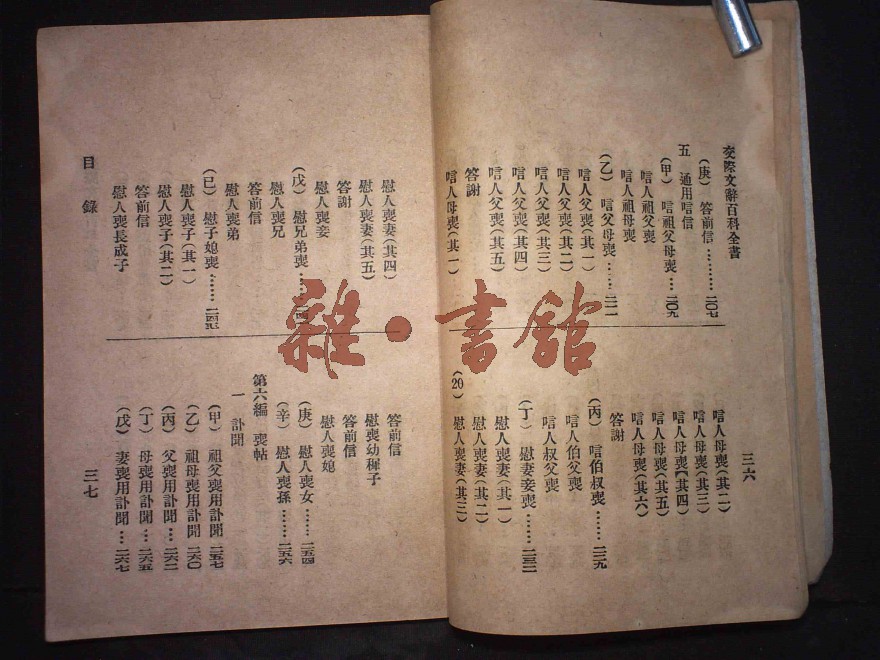 交際文辭百科全書
三六
(庚) 答前信………二〇七
五 通用唁信
(甲) 唁祖父母喪……二〇九
唁人祖父喪
唁人祖母喪
(乙) 唁父母喪……二一一
唁人父喪(其一)
唁人父喪(其二)
唁人父喪(其三)
唁人父喪(其四)
唁人父喪(其五)
答謝
唁人母喪(其一)
唁人母喪(其二)
唁人母喪(其三)
唁人母喪(其四)
唁人母喪(其五)
唁人母喪(其六)
答謝
(丙) 唁伯叔喪……二二九
唁人伯父喪
唁人叔父喪
(丁) 慰妻妾喪……二三二
慰人喪妻(其一)
慰人喪妻(其二)
慰人喪妻(其三)
(20)
慰人喪妻(其四)
慰人喪妻(其五)
答謝
慰人喪妾
(戊) 慰兄弟喪
慰人喪兄
答前信
慰人喪弟
(已) 慰子媳喪……
慰人喪子(其一)
慰人喪子(其二)
答前信
慰人喪長成子
答前信
慰喪幼穉子
答前信
慰人喪媳
(庚) 慰人喪女……二五四
(辛) 慰人喪孫……二五六
第六編 喪帖
一 訃聞
(甲) 祖父喪用訃聞 二五七
(乙) 祖母喪用訃聞 二六〇
(丙) 父喪用訃聞…二六二
(丁) 母喪用訃聞…二六五
(戊) 妻喪用訃聞…二六七
目錄
三七
雜·書館